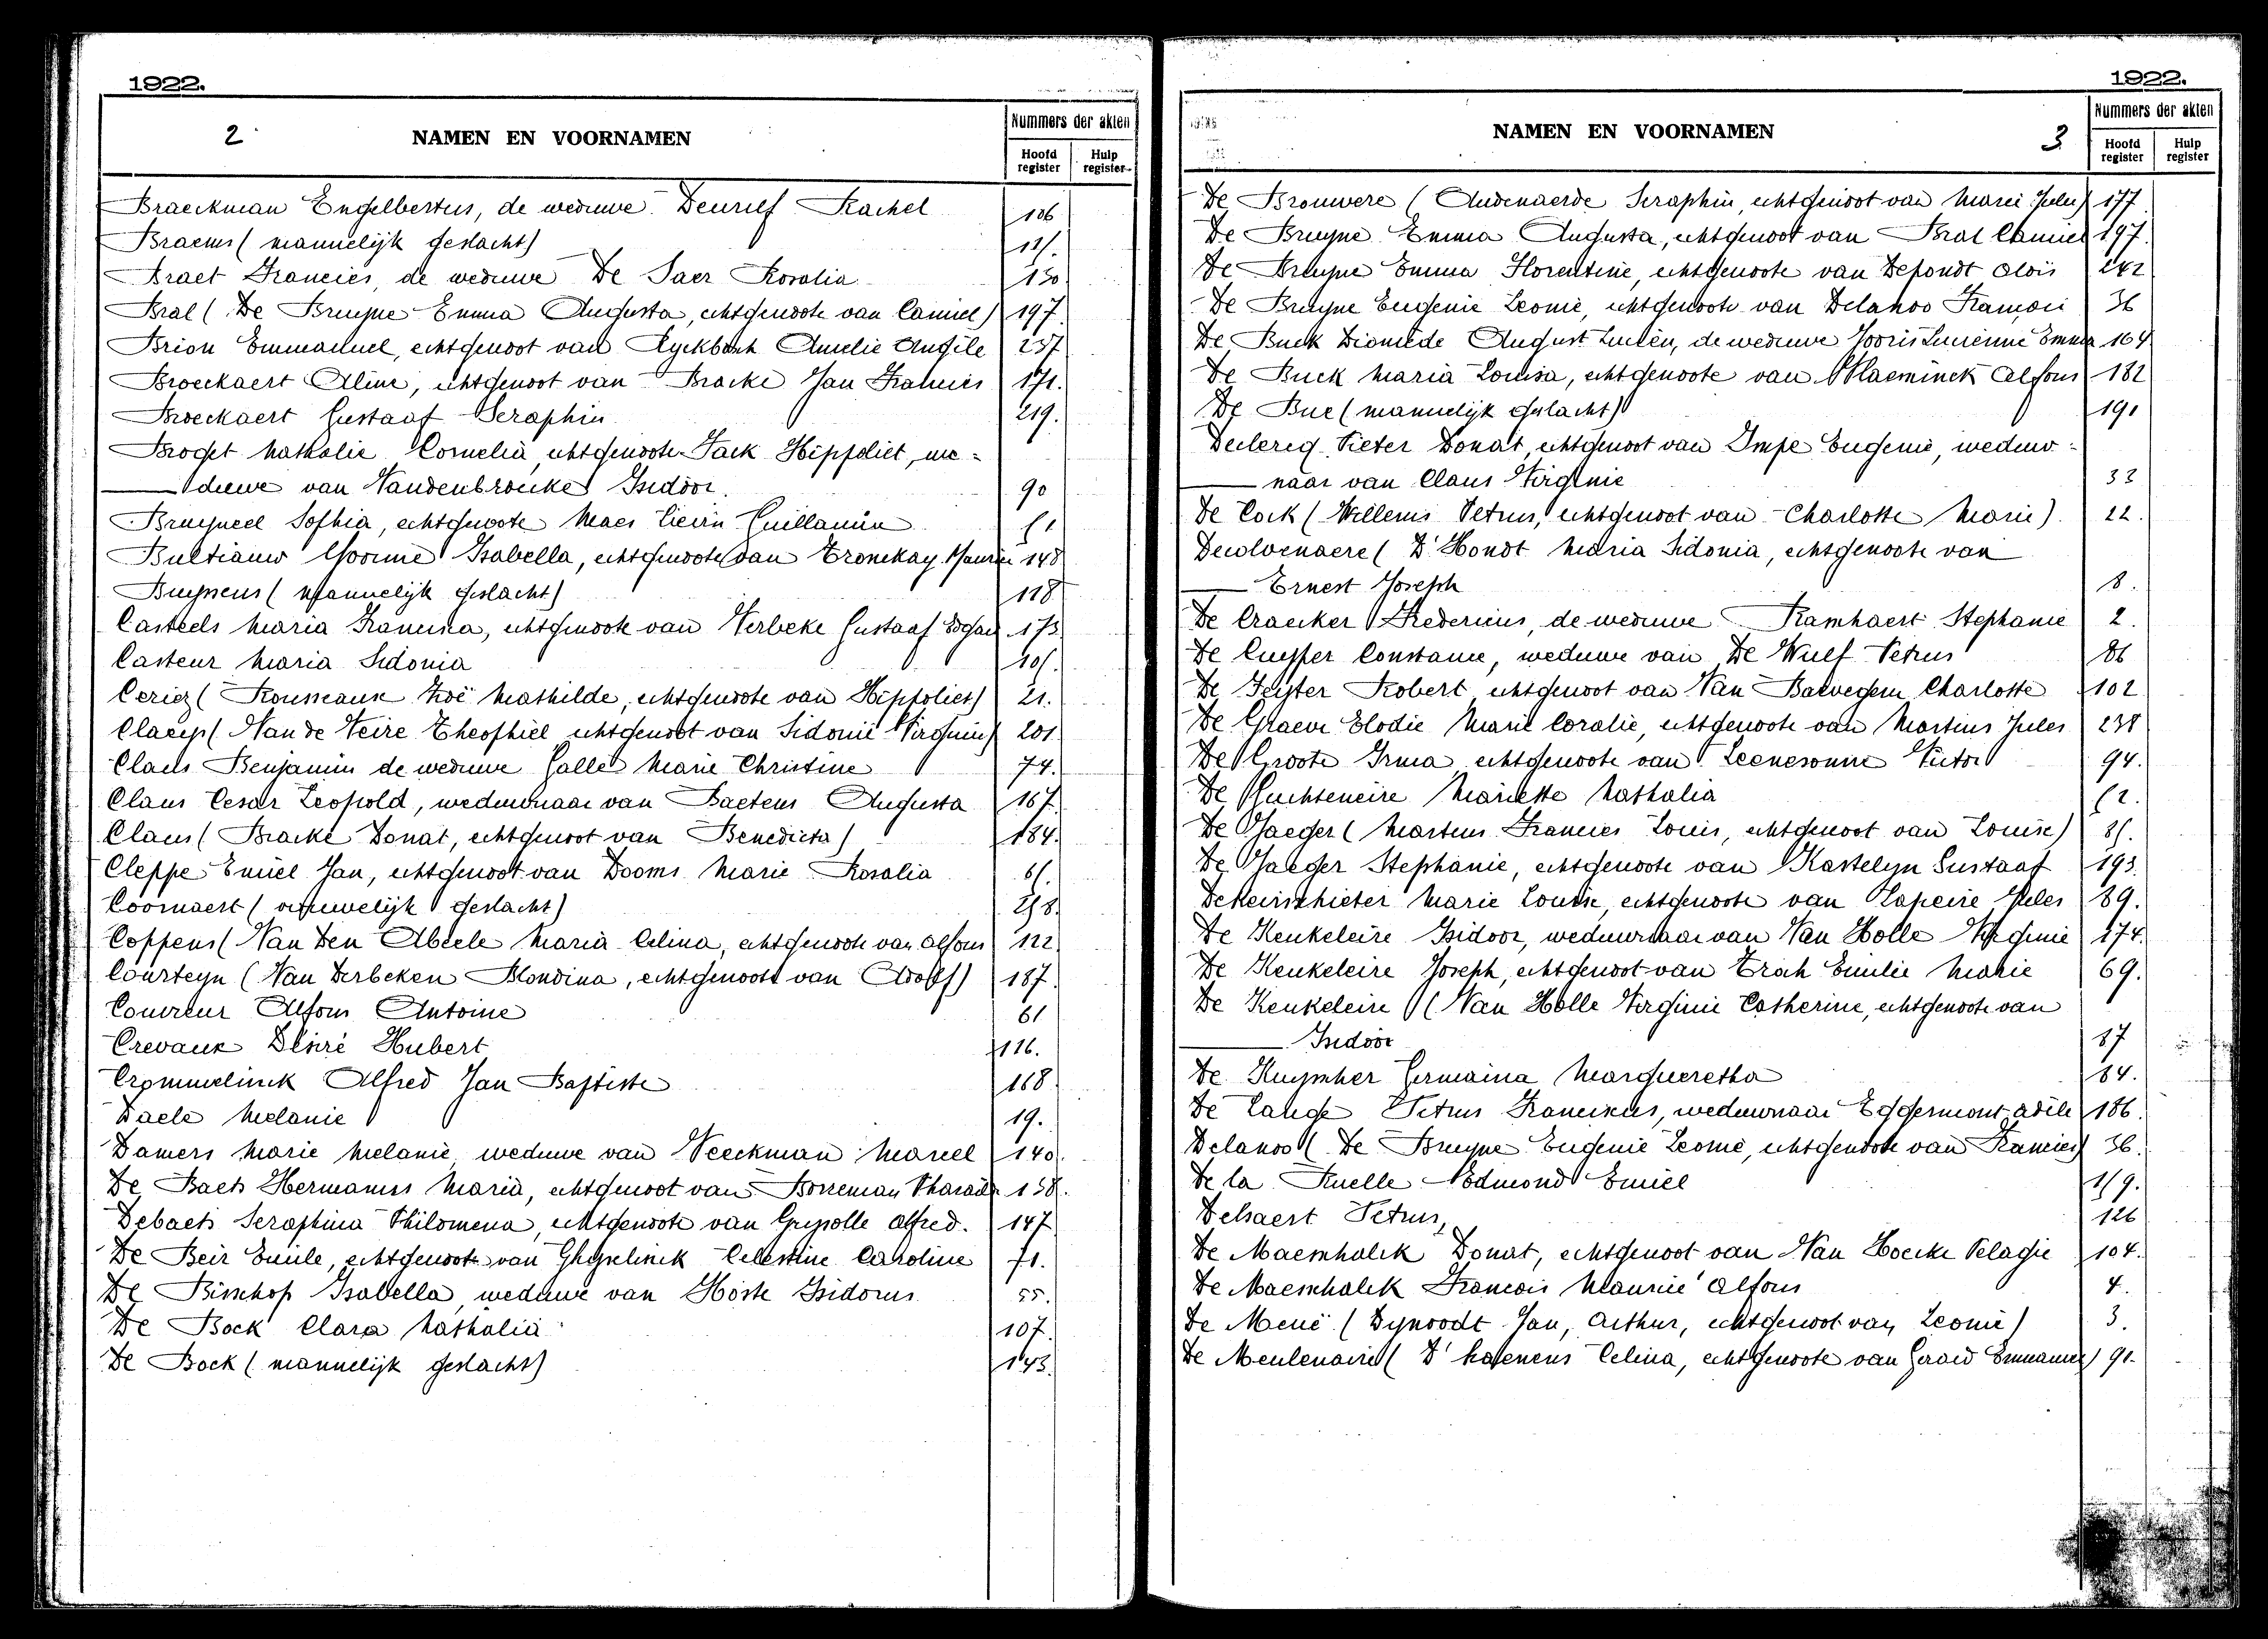 1922.
2 NAMEN EN VOORNAMEN
Nummers der akten
Hoofd register Hulp register
Braeckman Engelbertus, de weduwe Deurief Rachel 106
Braems (mannelijk geslacht)
Braet Francies, de weduwe De Saer Rosalia 130
Bral (De Bruyne Emma Augusta, echtgenoote van Camiel) 197.
Brion Emmanuel, echtgenoot van Ryckbosch Amelie Angèle 237
Broeckaert Aline, echtgenoot van Bracke Jan Francies 171.
Broeckaert Gustaaf Seraphin 219.
Broget Nathalie Cornelia, echtgenoote Tack Hippoliet, we-
duwe van Vandenbroucke Isidoor. 90
Bruyneel Sophia, echtgenoote Maes Lievin Guillaume
Bultiauw Yvonne Isabella, echtgenoote van Tronckay Maurice 148
Buysens (mannelijk geslacht) 118
Casteels Maria Francisca, echtgenoote van Verbeke Gustaaf Edgard 173
Casteur Maria Sidonia
Ceriez (Rousseaux Zoë Mathilde, echtgenoote van Hippoliet) 21.
Claeys (Van de Veire Theophiel echtgenoot van Sidonie Virginie) 201.
Claus Benjamin de weduwe Galle Marie Christine 74.
Claus Cesar Leopold, weduwnaar van Baetens Augusta 167.
Claus (Bracke Donat, echtgenoot van Benedicta) 184.
Cleppe Emiel Jan, echtgenoot van Dooms Marie Rosalia
Coornaert (vrouwelijk geslacht)
Coppens (Van Den Abeele Maria Celina, echtgenoote van Alfons 122
Courteyn (Van Derbeken Blondina, echtgenoote van Adolf) 187.
Couvreur Alfons Antoine 61
Crevaux Désiré Hubert 116.
Crommelinck Alfred Jan Baptiste 168
Daele Melanie 19.
Damers Marie Melanie, weduwe van Veeckman Marcel 140.
De Baets Hermanus Maria, echtgenoot van Borreman Pharaïlde 138.
Debaets Seraphina Philomena, echtgenoote van Grypolle Alfred. 147
De Beir Emile, echtgenoote van Ghyselinck Celestine Caroline 71.
De Bisschop Isabella, weduwe van Hoste Isidorus 55.
De Bock Clara Nathalia 107.
De Bock (mannelijk geslacht) 143.
1922.
NAMEN EN VOORNAMEN 3
Nummers der akten
Hoofd register Hulp register
De Brouwere (Audenaerde Seraphin, echtgenoot van Marie Julie) 177
De Bruyne Emma Augusta, echtgenoot van Bral Camiel 197.
De Bruyne Emma Florentine, echtgenoote van Defondt Aloïs 242
De Bruyne Eugenie Leonie, echtgenoote van Delanoo François 36
De Buck Diomède August Lucien, de weduwe Jooris Lucienne Emma 164
De Buck Maria Louisa, echtgenoote van Vlaeminck Alfons 182
De Bue (mannelijk geslacht) 191
Declercq Pieter Donat, echtgenoot van Impe Eugenie, weduw-
naar van Claus Virginie 33
De Cock (Willems Petrus, echtgenoot van Charlotte Marie). 22.
Decolvenaere (D'Hondt Maria Sidonia, echtgenoote van
Ernest Joseph 8.
De Craecker Fredericus, de weduwe Ramhaert Stephanie 2.
De Cuyper Constance, weduwe van De Wulf Petrus 86
De Feyter Robert, echtgenoot van Van Baevegem Charlotte 102
De Graeve Elodie Marie Coralie, echtgenoote van Martins Jules 238
De Groote Irma, echtgenoote van Leenesonne Victor 94.
De Guchteneire Mariette Nathalia
De Jaeger (Martens Francies Louis, echtgenoot van Louise)
De Jaeger Stephanie, echtgenoote van Kastelyn Gustaaf 193.
Dekeirschieter Marie Louise, echtgenoote van Lapeire Jules 89.
De Keukeleire Isidoor, weduwnaar van Van Holle Virginie 174.
De Keukeleire Joseph, echtgenoot van Troch Emilie Marie 69.
De Keukeleire (Van Holle Virginie Catherine, echtgenoote van
Isidoor 87
De Kuyssher Germaina Margueretha 84.
De Lange Petrus Franciscus, weduwnaar Eggermont Adèle 186.
Delanoo (De Bruyne Eugenie Leonie, echtgenoote van Francies) 36.
De la Ruelle Edmond Emiel
Delsaert Petrus, 126
De Maesschalck Donat, echtgenoot van Van Hoecke Pelagie 104.
De Maesschalck François Maurice Alfons 4.
De Meue (Dynoodt Jan, Arthur, echtgenoot van Leonie) 3.
De Meulenaire (D'haenens Celina, echtgenoote van Gerard Emmanuel) 91.